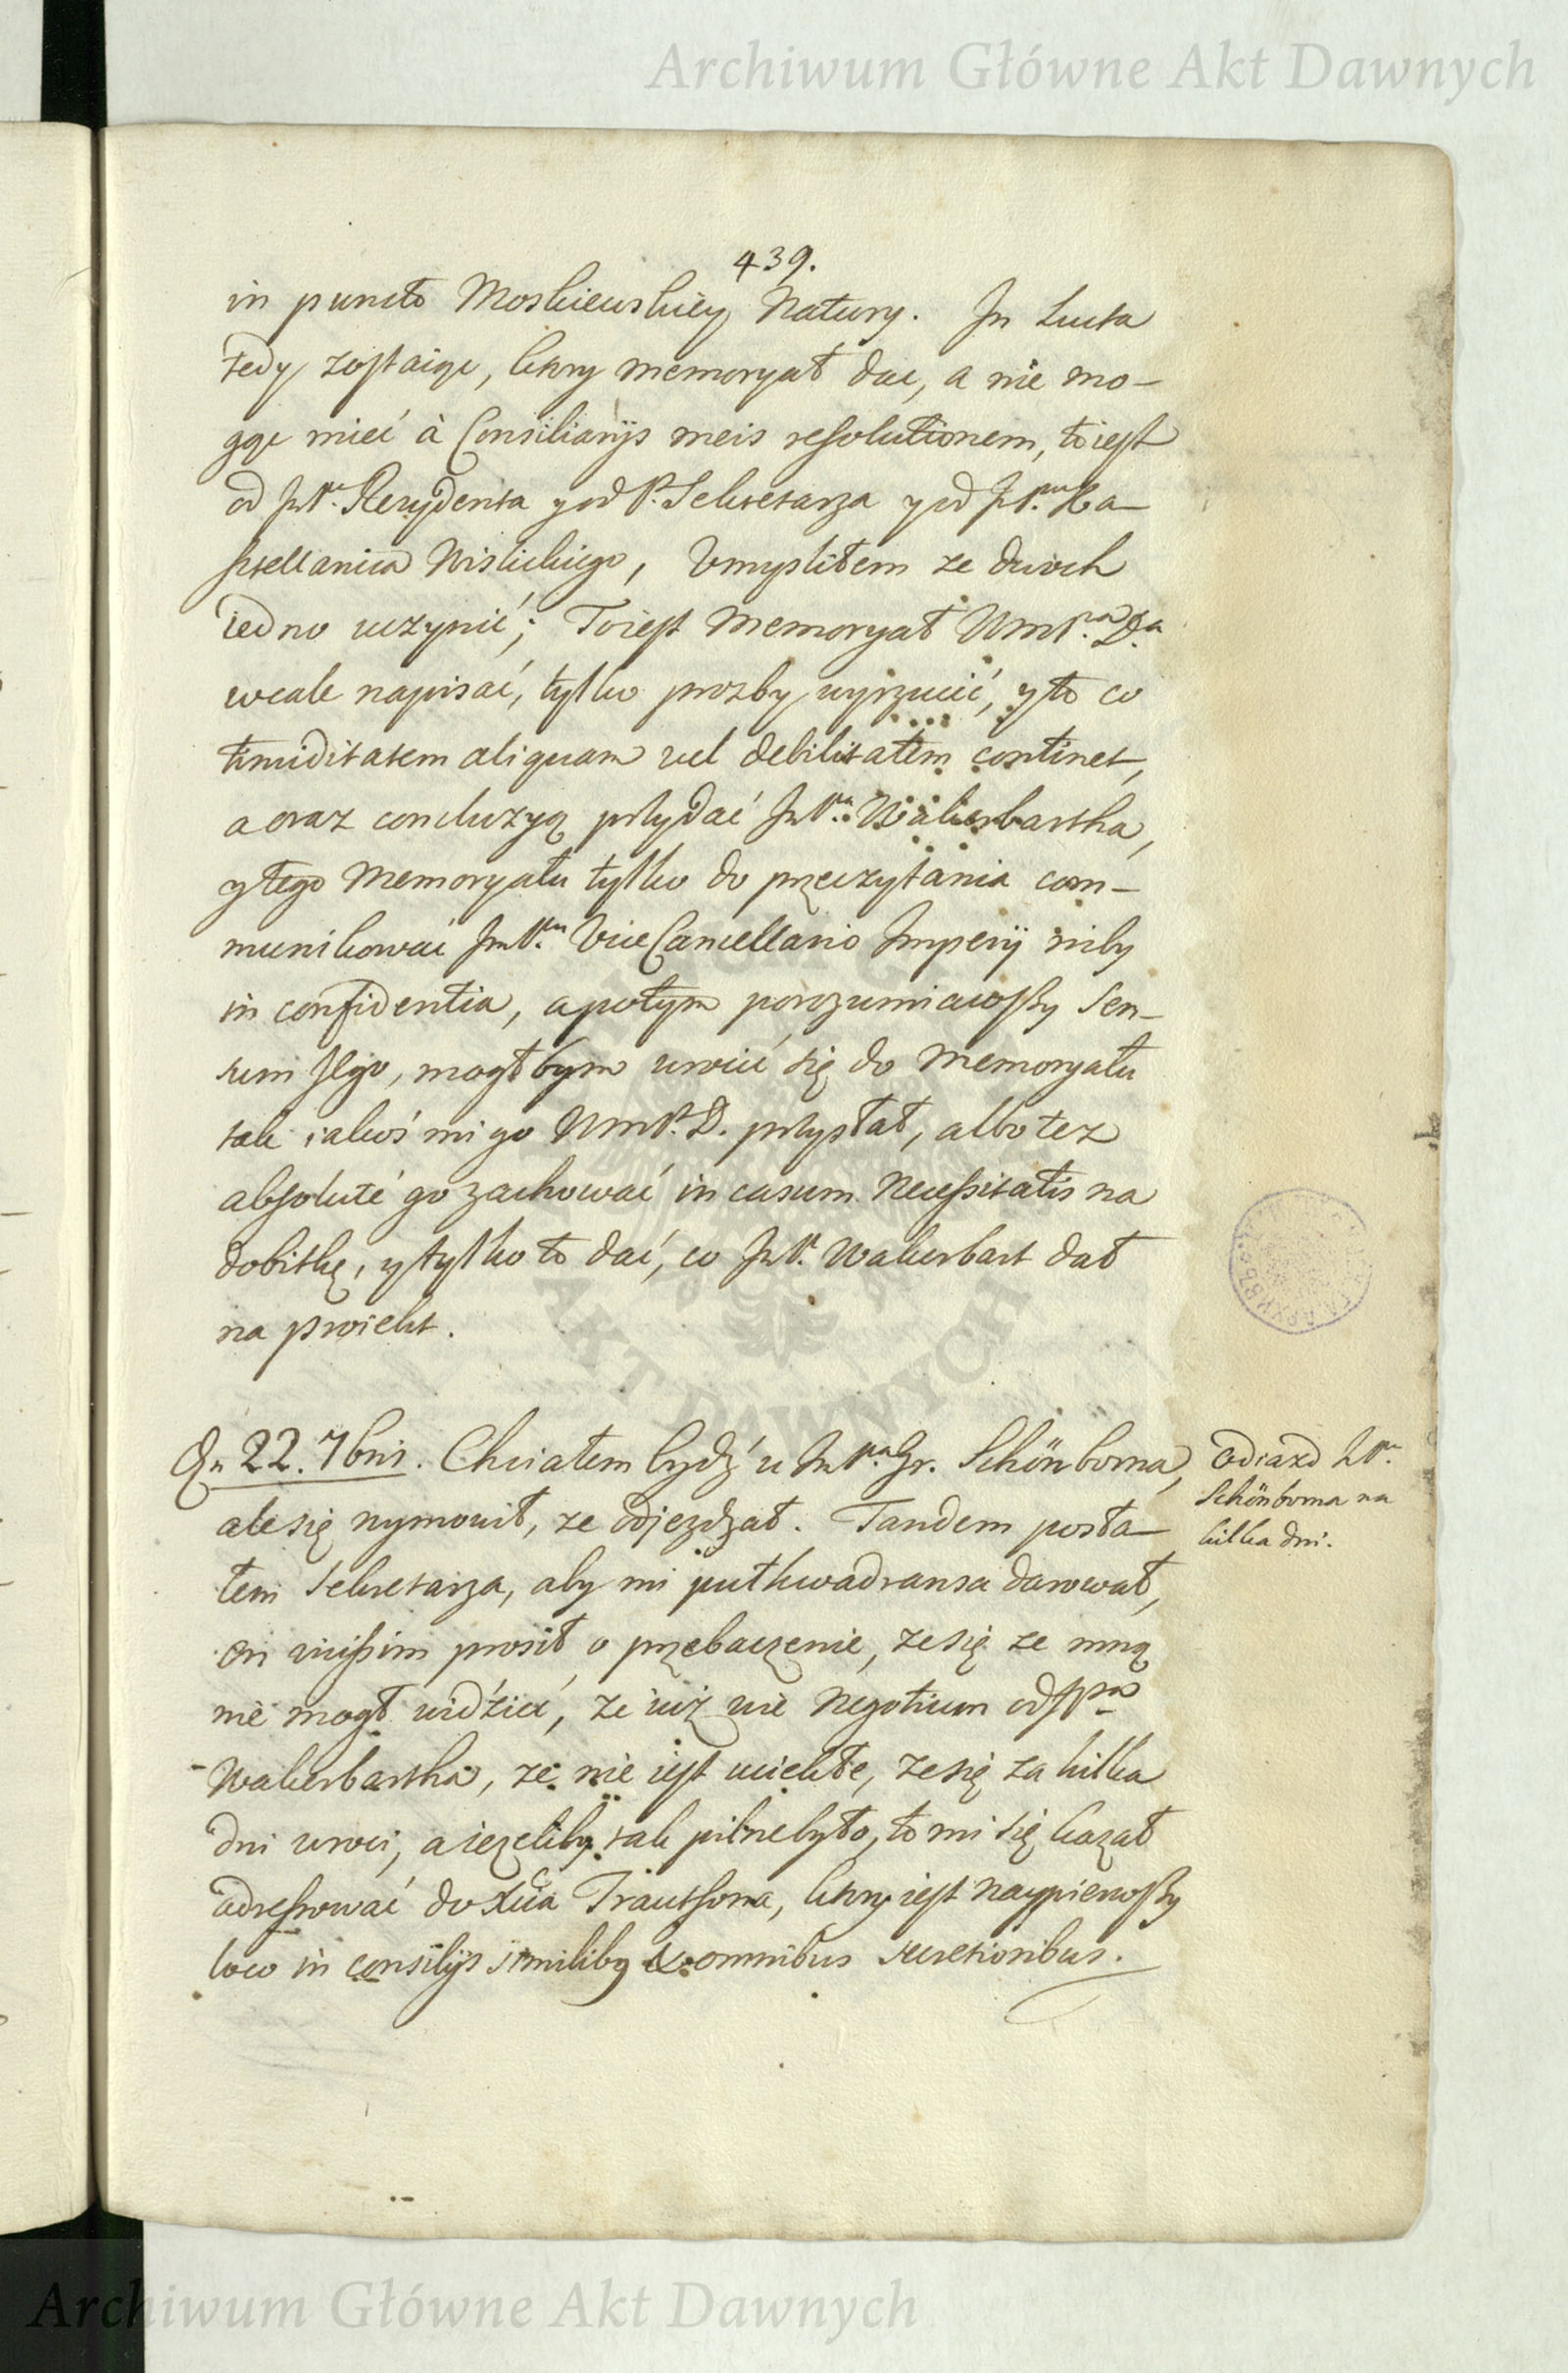 Archiwum Główne Akt Dawnych
439.
in puncto Moskiewskiey Natury. In Lucta
tedy zostaiąc, ktory memoryał dac, a nie mo-
gąc mieć à Consiliarijs meis resolutionem, to iest
od JmP.ª Rezydenta y od P. Sekretarza y od JmP.ªª Ka-
sztellanica Wislickiego, Vmysliłem ze dwoch
iedno uczynić; To iest Memoryał WmP.ªª D.ª
wcale napisać, tylko prozby wyrzucić, y to co
timiditatem aliquam vel debilitatem continet,
a oraz concluzyą przydać JmP.ªª Wakerbartha,
y tego Memoryału tylko do przeczytania com-
munikować JmP.ªª Vice Cancellario Imperij niby
in confidentia, a potym porozumiawszy Sen-
sum Jego, mogł bym wrocić się do Memoryału
tak iakoś mi go WmP. D. przysłał, albo tez
absolutè go zachować in casum Necessitatis na
dobitkę, y tylko to dać, co JmP. Wakerbart dał
na proiekt.
Dn 22. 7bris. Chciałem bydź u JmP.ªª Gr. Schönborna,
ale się wymowił, ze odjezdzał. Tandem posła-
łem Sekretarza, aby mi puł kwadransa darował,
on vicissim prosił o przebaczenie, ze się ze mną
nie mogł widźieć, ze iuż wie Negotium od JP.ªª
Wakerbartha, ze nie iest uciekłe, ze się za kilka
dni wroci, a iezeliby tak pilne było, to mi się kazał
adressować do Xcia Trautsona, ktory iest naypierwszy
loco in consilijs similibg & omnibus secretioribus.
Odiazd JmP.ª
Schönborna na
kilka dni.
AKT DAWNYCH
Archiwum Główne Akt Dawnych